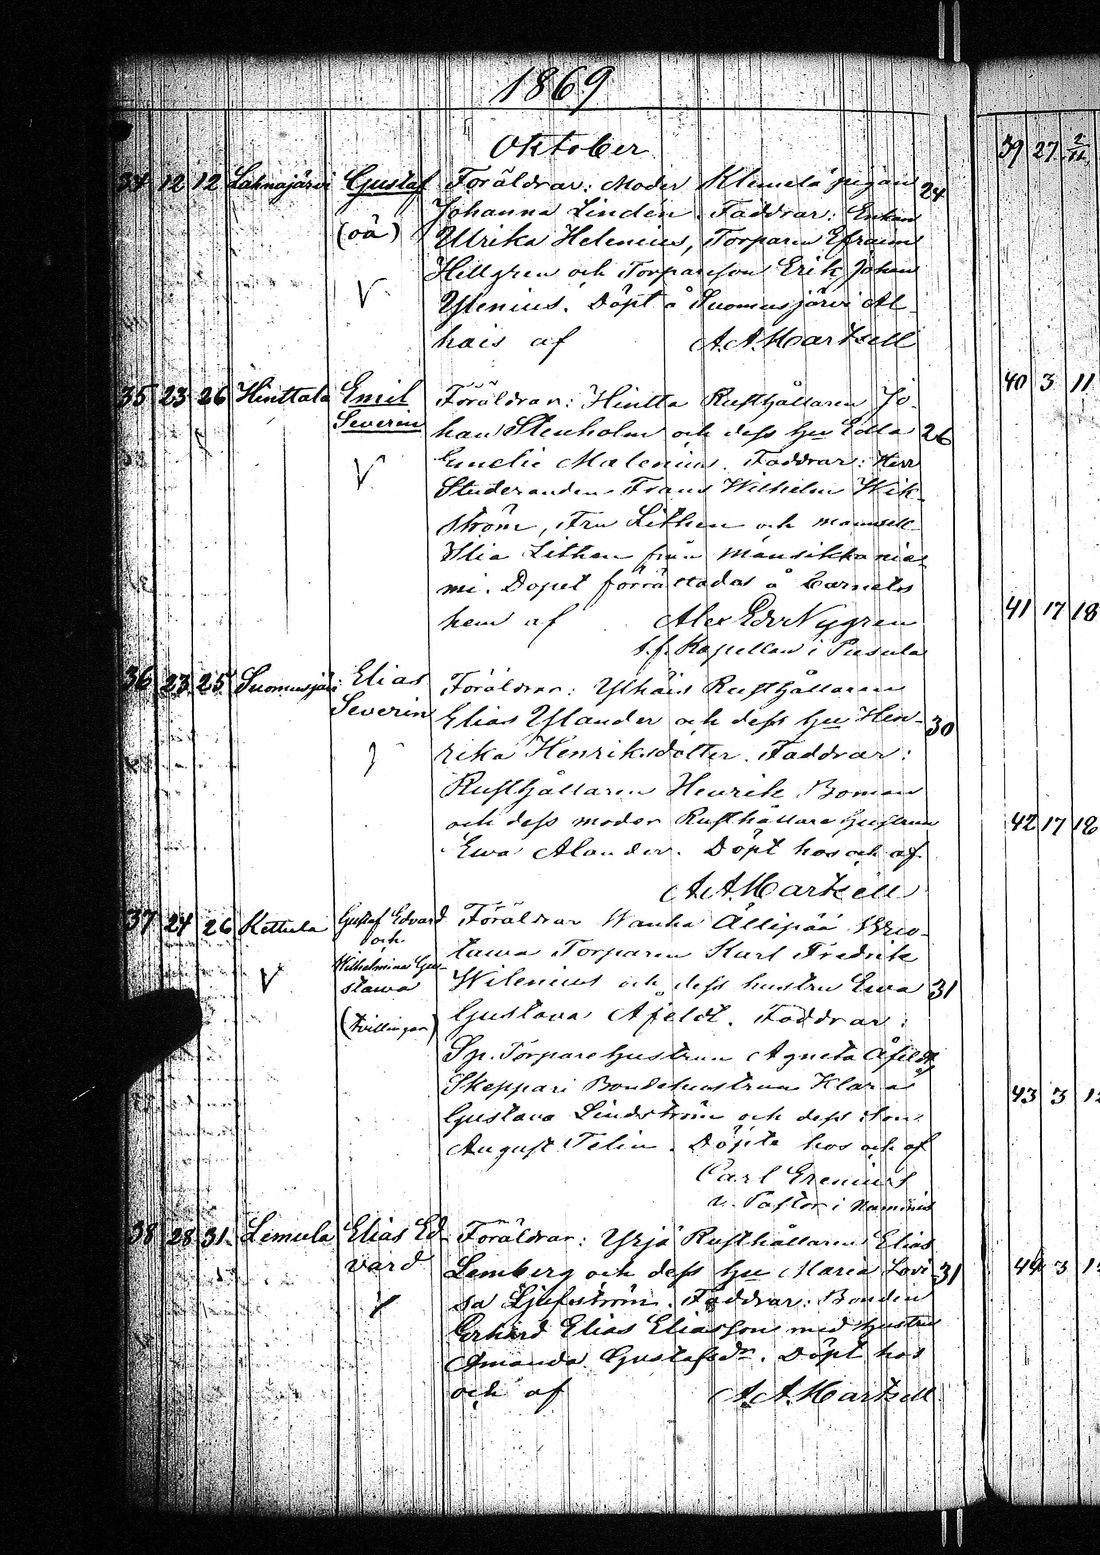 1869
Oktober
34 12 12 Lahnajärvi Gustaf (oä) V Föräldrar: Moder Klemelä pigan 24
Johanna Lindén. Faddrar: Enkan
Ulrika Helenius, Torparen Efraim
Hellgren och Torpareson Erik Johan
Ylenius. Döpt å Suomusjärvi Al-
hais af A. A. Martzell
35 23 26 Hinttala Emil Severin V Föräldrar: Hintta Rusthållaren Jo-
han Stenholm och dess hu Edla 26
Emelie Malenius. Faddrar: Herr
Studeranden Frans Wilhelm Wik-
ström, Fru Lithen och mamsell
Lithen från Mansikkanie-
mi. Dopet förrättades å barnets
hem af Alex Edv Nygren
t.f. Kapellan i Pusula
36 23 25 Suomusjärvi Elias Severin Föräldrar: Ylhäis Rusthållaren
Elias Ylander och dess hu Hen- 30
rika Henriksdotter. Faddrar:
Rusthållaren Henrik Boman
och dess moder Rusthållare hustrun
Ewa Alander. Döpt hos och af
A. A. Martzell
37 24 26 Kettula V Gustaf Edvard och Wilhelmina Gustawa (tvillingar) Föräldrar Wanha Ällipää
tawa Torparen Karl Fredrik
Wilenius och dess hustru Ewa 31
Gustava Åfeldt. Faddrar:
Sp. Torparehustrun Agneta Åfeldt
Skeppari Bondehustrun Klara
Gustava Lindström och dess son
August Telin. Döpte hos och af
Carl Grenius
v. Pastor i Nummis
38 28 31 Lemula Elias Edvard V Föräldrar: Yrjä Rusthållaren Elias
Lemberg och dess hu Maria Lovi- 31
sa Ljufström. Faddrar: Bonden
Erhard Elias Eliasson med hustru
Amanda Gustafsdr. Döpt hos
och af A. A. Martzell
39 27 2/11
40 3 11
41 17 18
42 17 18
43 3 12
44 3